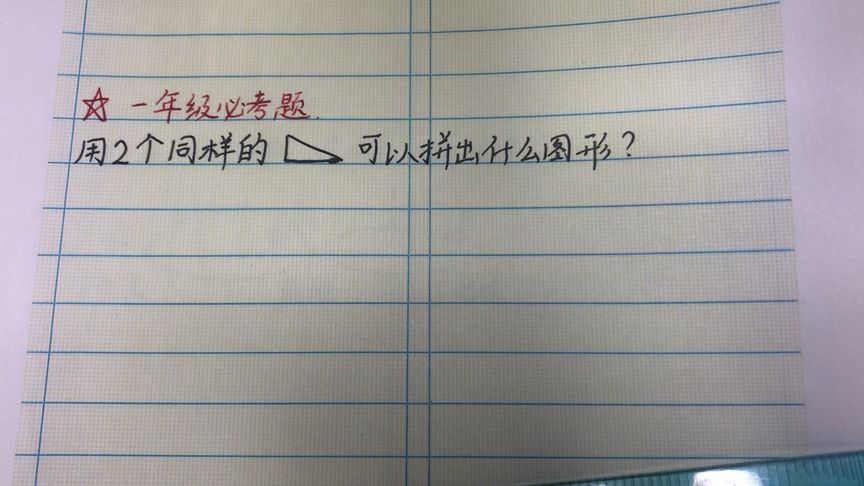 ☆ 一年级必考题.
用2个同样的 可以拼出什么图形?